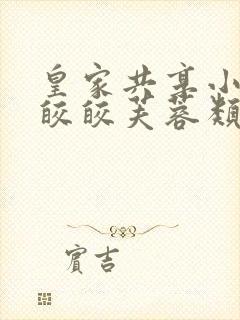 皇家共享小
皎皎芙蓉类
賓吉